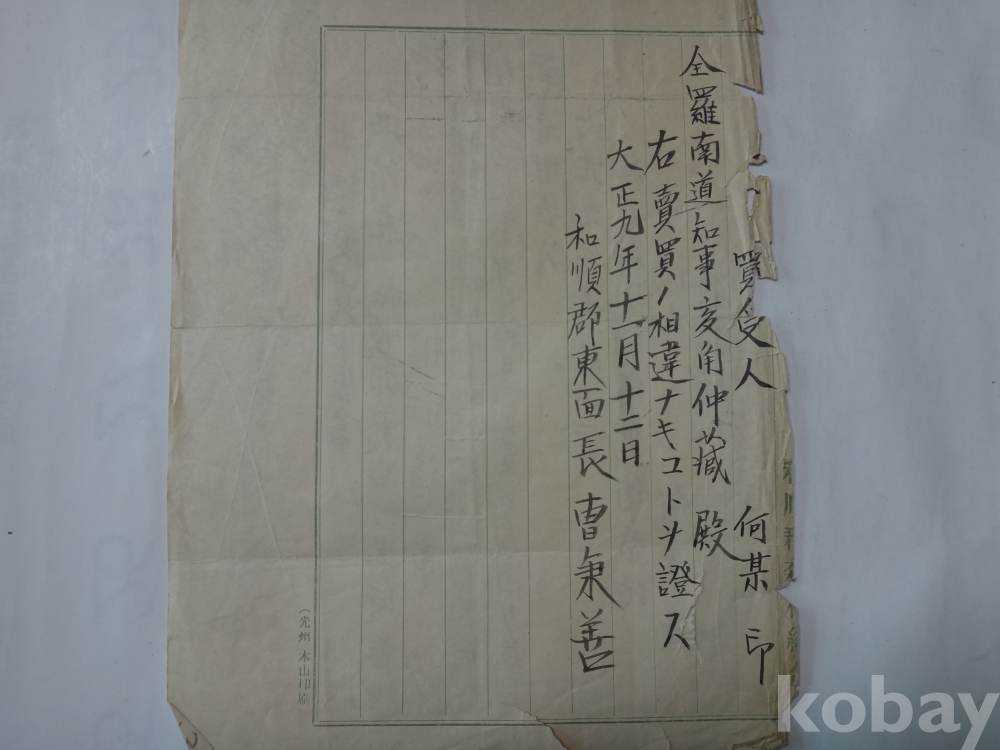 買受人 何某 印
全羅南道知事亥角仲藏 殿
右賣買ノ相違ナキコトヲ證ス
大正九年十一月十二日
和順郡東面長 曺秉善
(光州 木山印刷
kobay